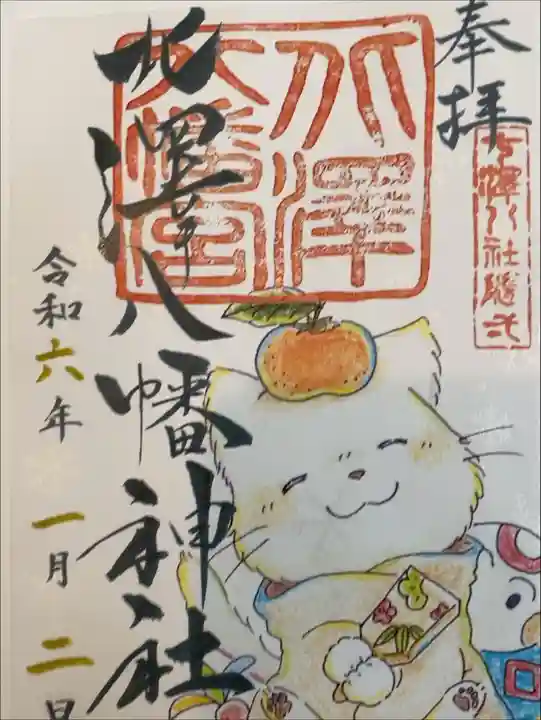 奉拝
七澤八社隨弌
北澤八幡神社
北澤
八幡宮
令和六年一月二日